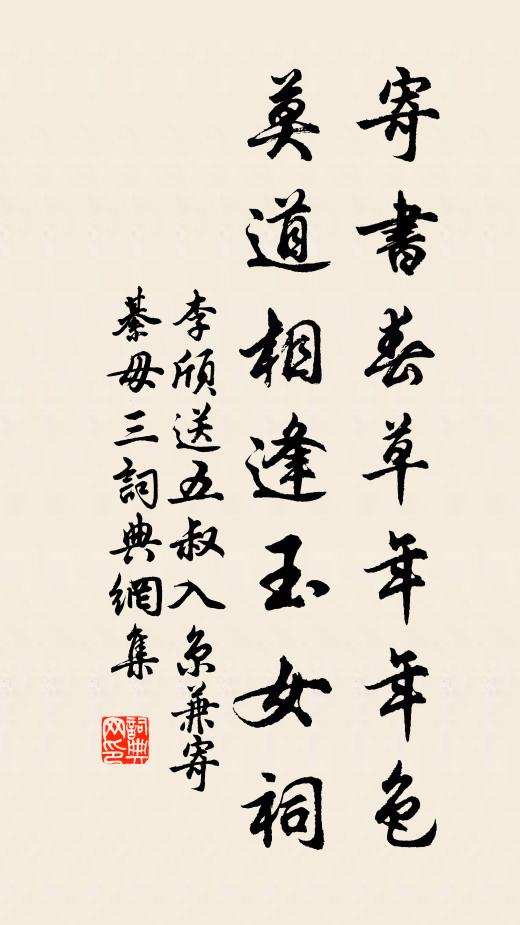 寄書春草年年色
莫道相逢玉女祠
李頎送五叔入京兼寄
綦毋三詞典網集
詞典網印